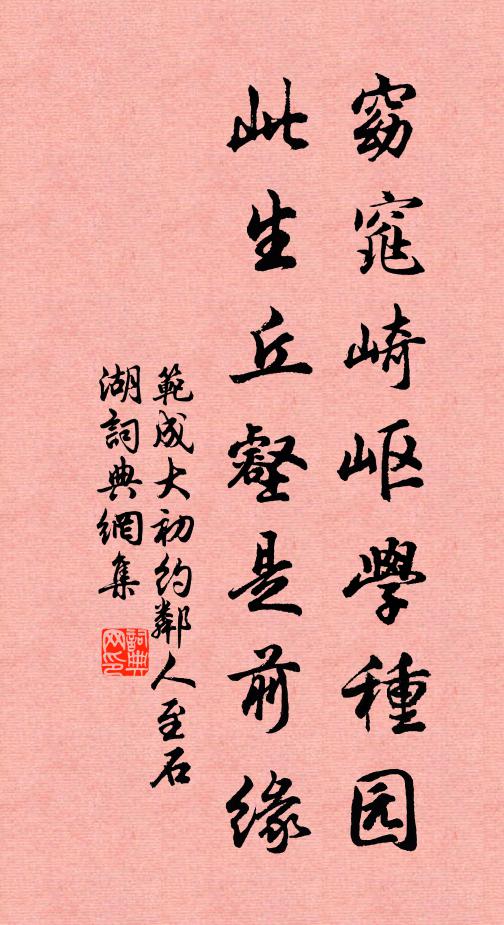 窈窕崎岖學種园
此生丘壑是前緣
範成大初約鄰人至石
湖詞典網集
詞典网印